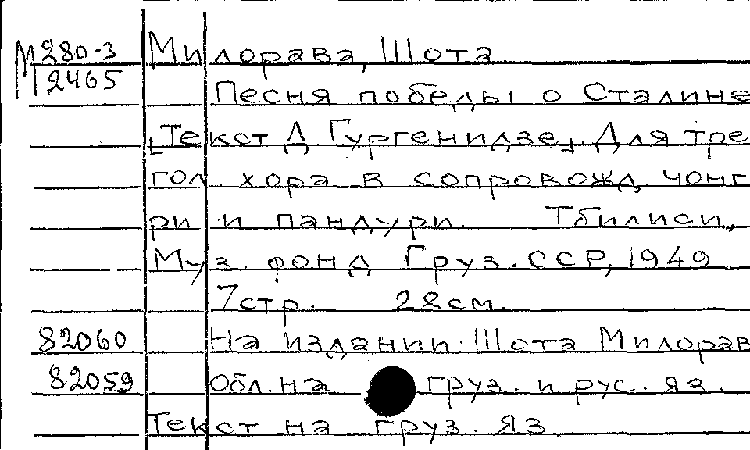 М280-3 Милорава, Шота
12465 Песня победы о Сталине
[Текст Д Гургенидзе]. Для трех
гол хора в сопровожд, чонг
ри и пандури. Тбилиси,
Муз. фонд Груз. ССР, 1949
7стр. 28см.
82060 На издании: Шота Милорав
82059 Обл. на груз. и рус. яз.
Текст на груз. яз